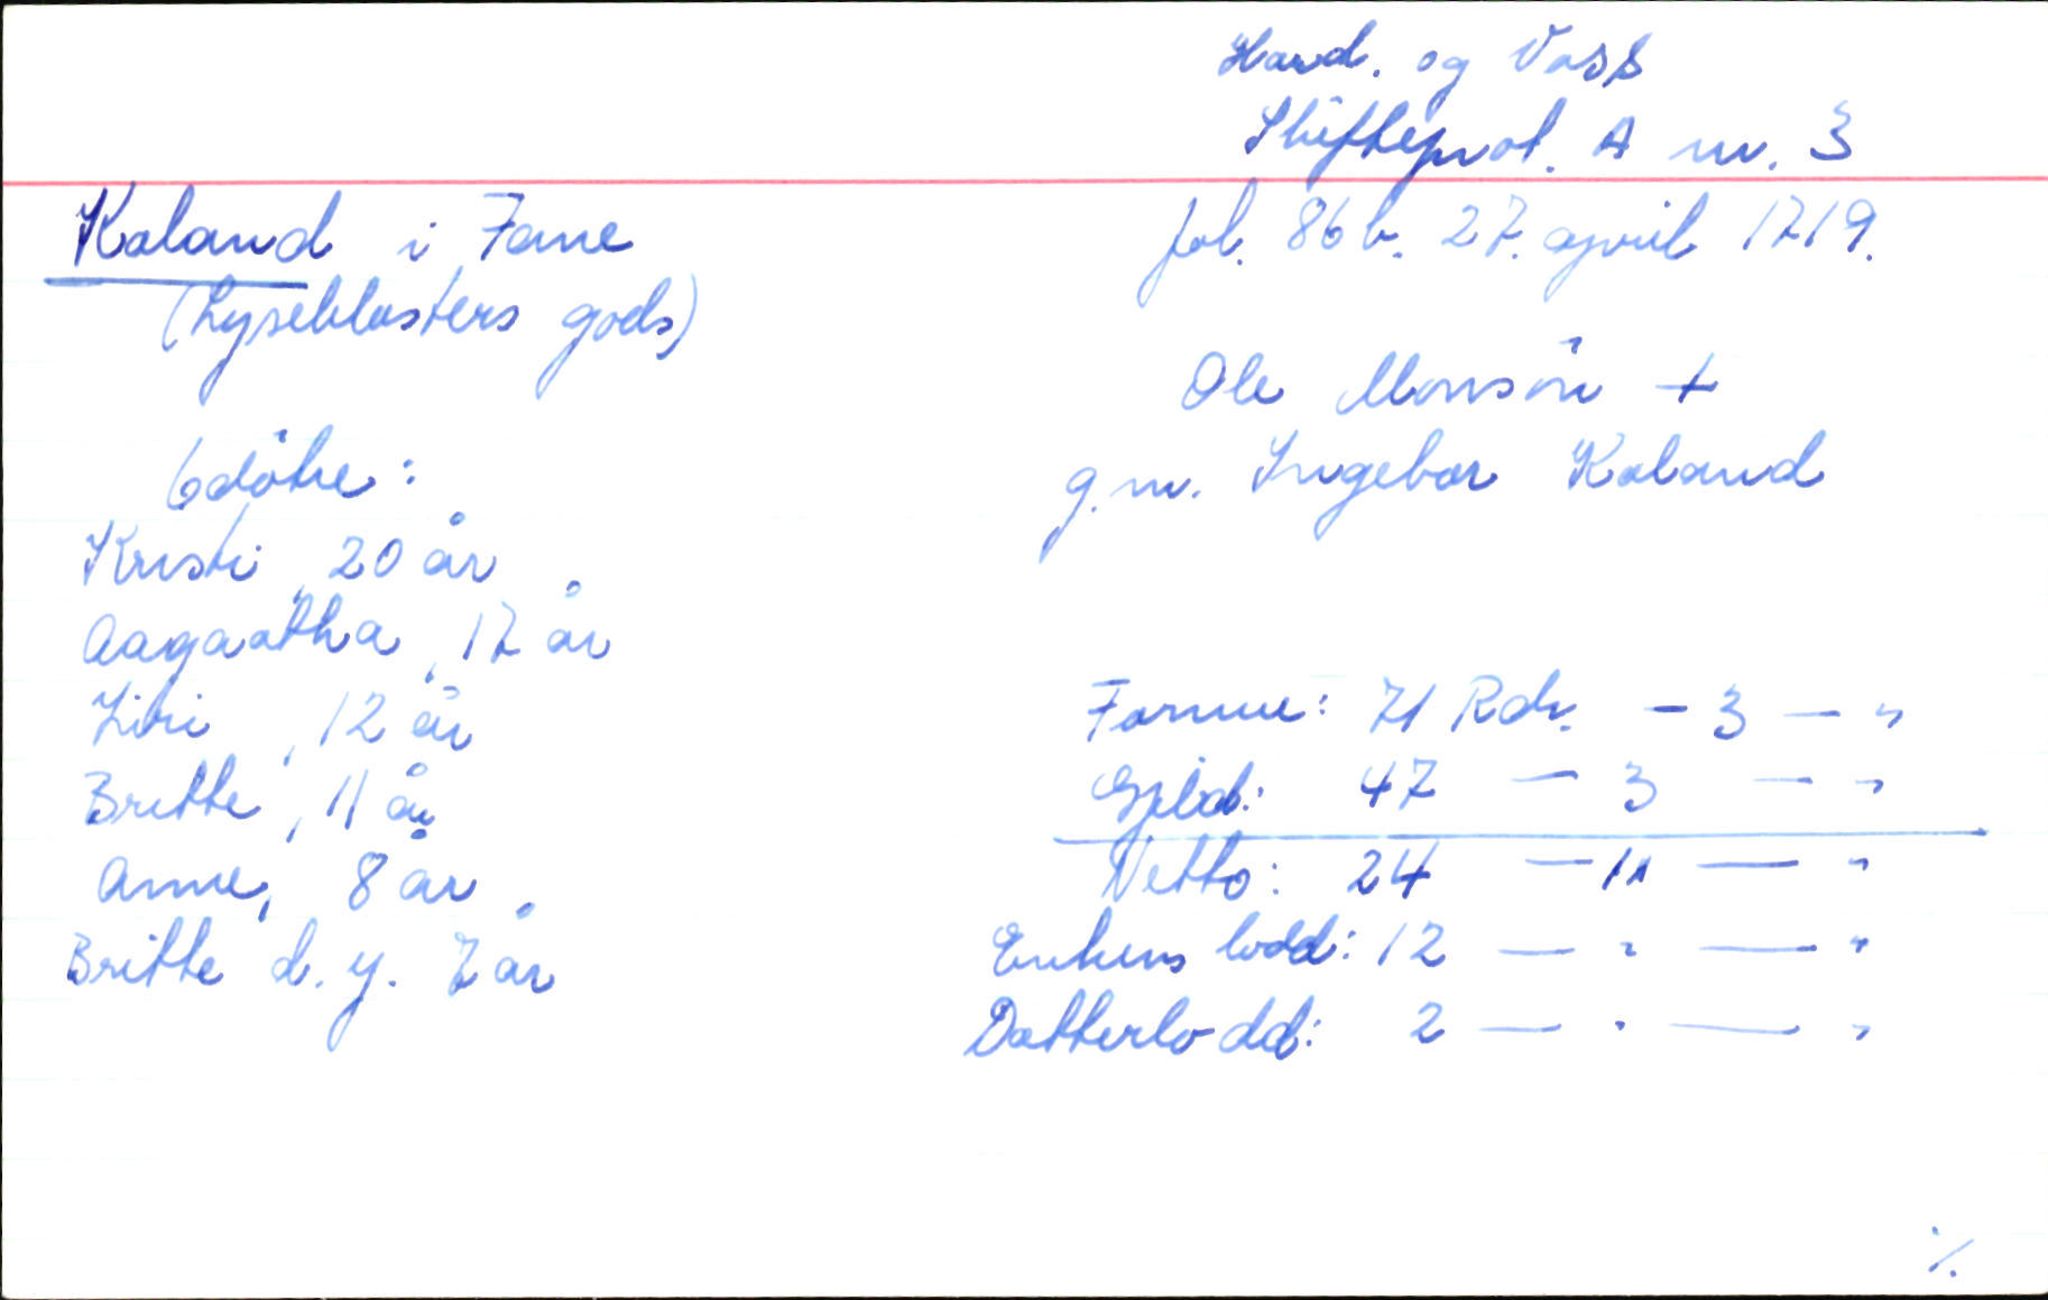 Hard. og Voss
Skifteprot. A nr. 3
fol. 86 b. 27. april 1719.
Kaland i Fane
(Lyseklosters gods)
Ole Monsøn +
g.m. Ingebor Kaland
6 døtre:
Kristi, 20 år
Aagaatha, 17 år
Ziri, 12 år
Britte, 11 år
Anne, 8 år
Britte d.y. 7 år
Formue: 71 Rdr. - 3 - "
Gjeld: 47 - 3 - "
Netto: 24 - " - "
Enkens lodd: 12 - " - "
Datterlodd: 2 - " - "
./.